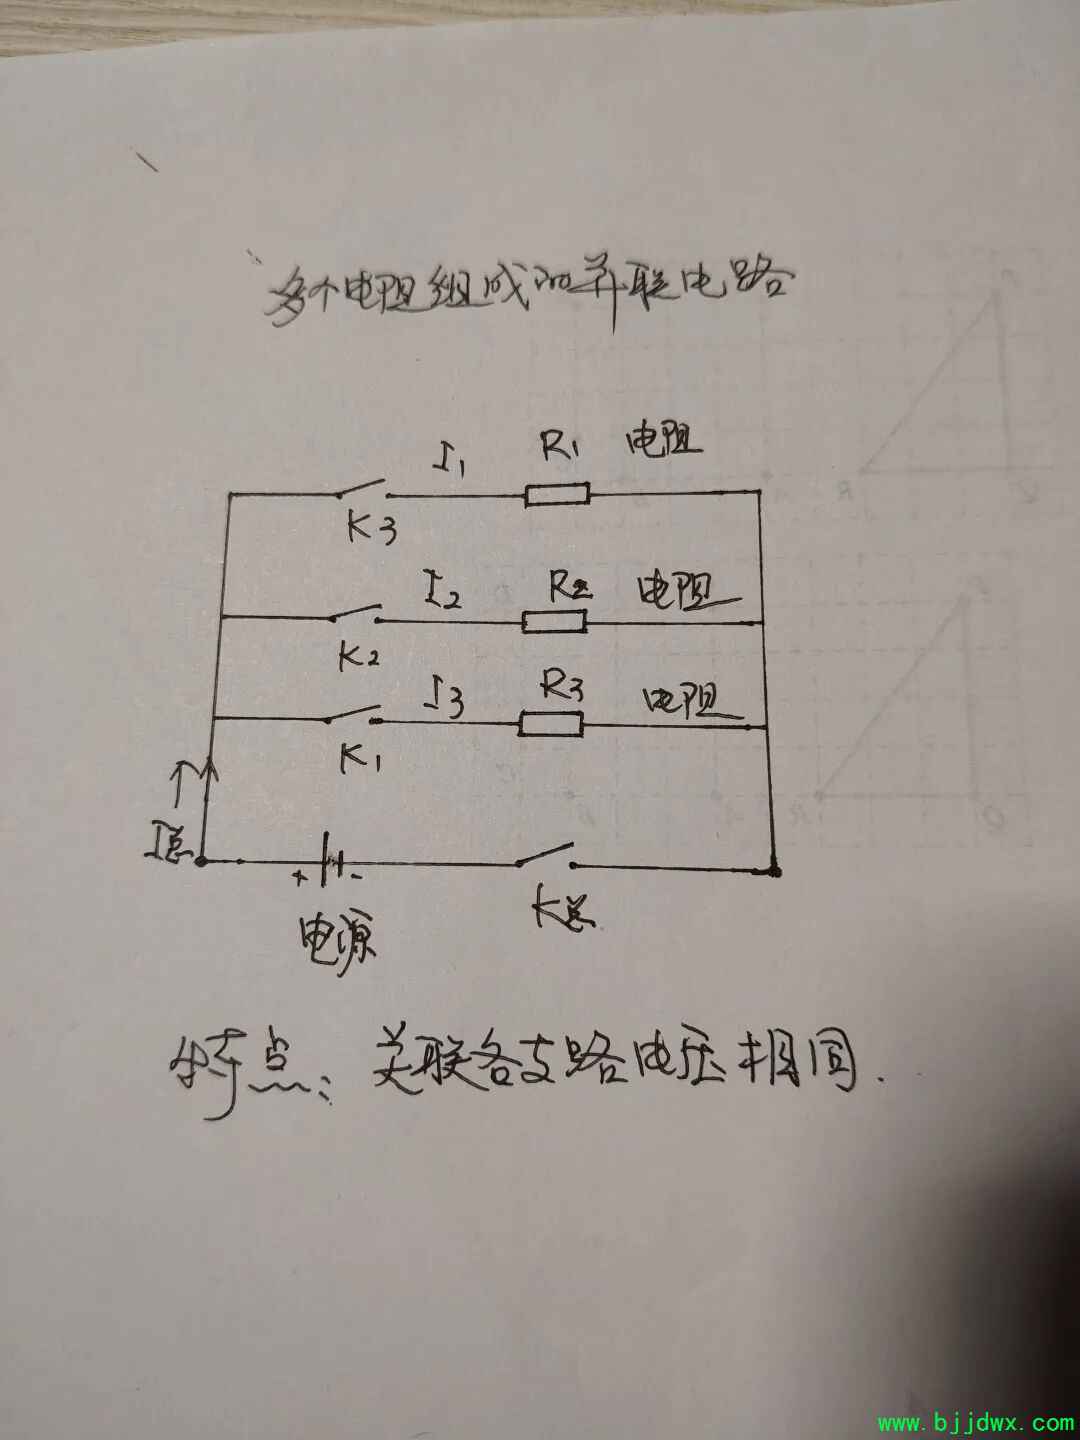 多个电阻组成的并联电路
I1 R1 电阻
K3
I2 R2 电阻
K2
I3 R3 电阻
K1
I总
+ -
K总
电源
特点: 关联各支路电压相同.
www.bjjdwx.com